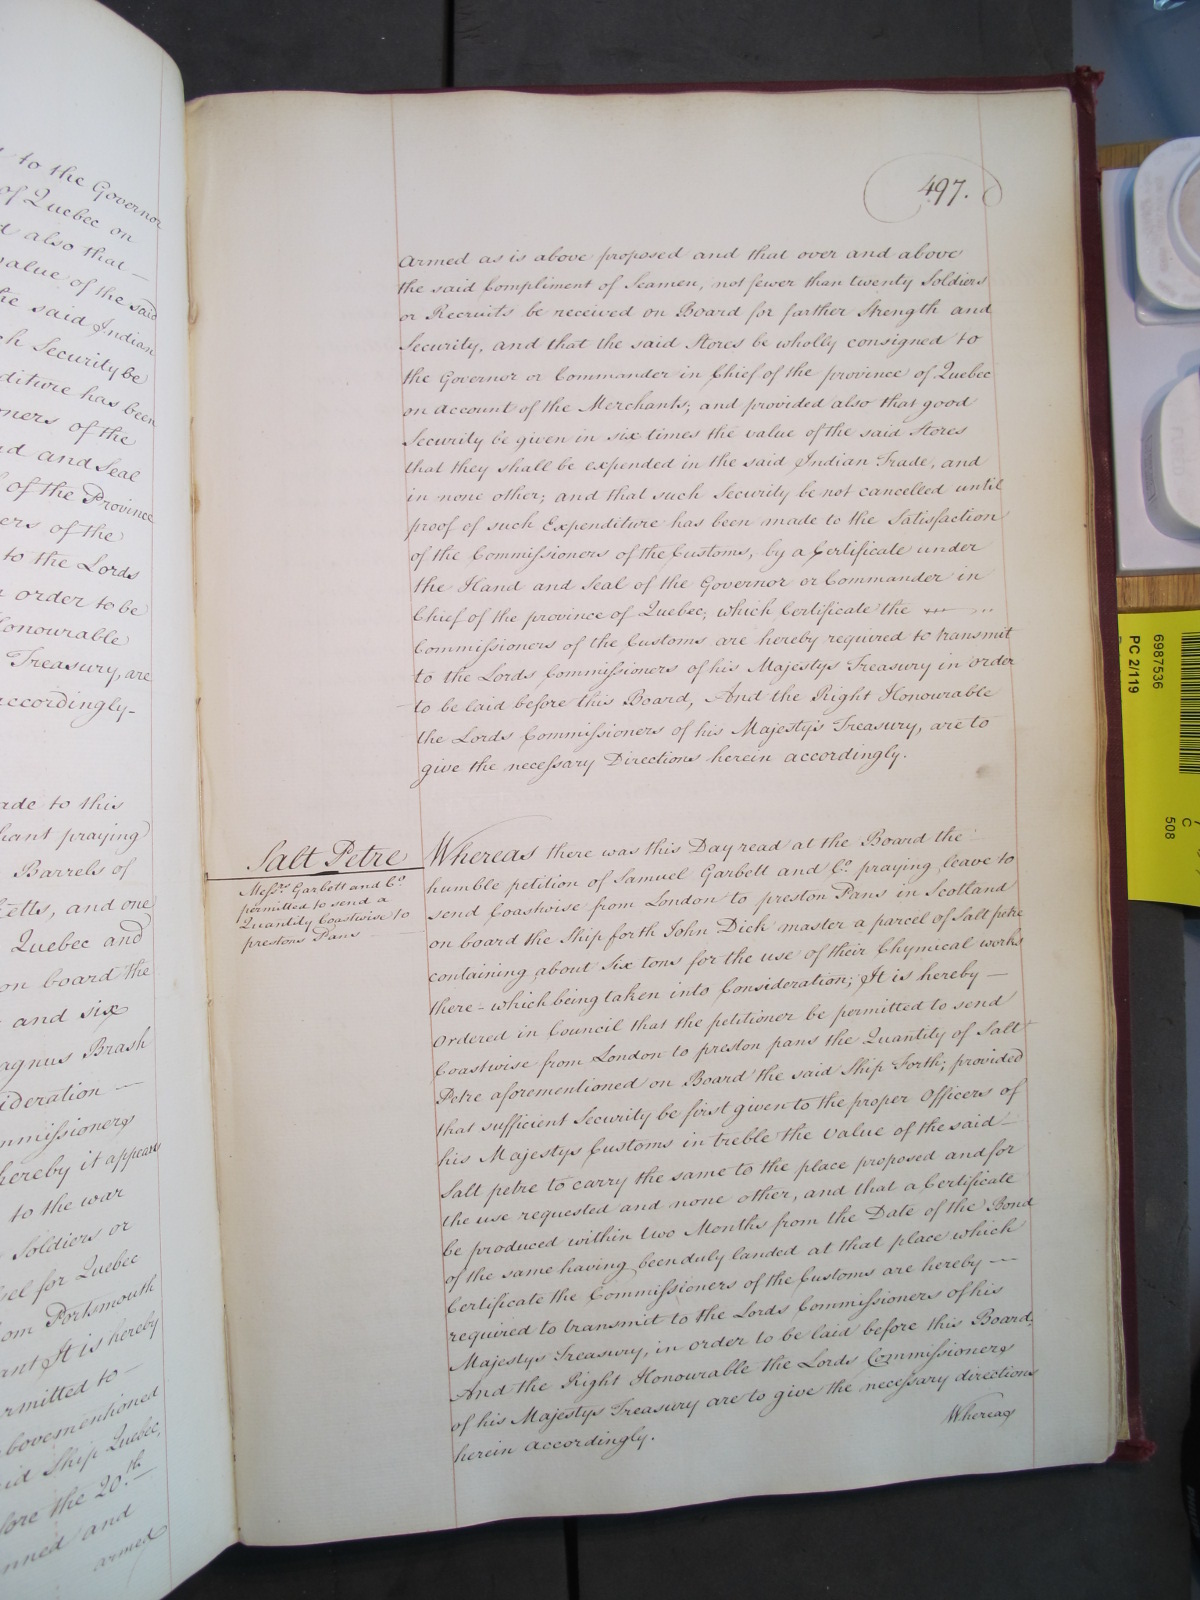 to the Governor
of Quebec on
also that —
value of the said
the said Indian
Security be
diture has been
oners of the
and Seal
of the Province
ers of the
to the Lords
order to be
Honourable
Treasury, are
accordingly–
ade to this
hant praying
Barrels of
etts, and one
Quebec and
on board the
— and six
agnus Brash
ideration —
mmissioners
hereby it appears
to the war
Soldiers or
sel for Quebec
om Portsmouth
ant It is hereby
rmitted to –
bovementioned
aid Ship Quebec,
fore the 20.th —
nned and
armed
497.
Armed as is above proposed and that over and above
the said Compliment of Seamen, not fewer than twenty Soldiers
or Recruits be received on Board for farther Strength and
Security, and that the said Stores be wholly consigned to
the Governor or Commander in Chief of the province of Quebec
on account of the Merchants; and provided also that good
Security be given in six times the value of the said Stores
that they shall be expended in the said Indian Trade, and
in none other; and that such Security be not cancelled until
proof of such Expenditure has been made to the Satisfaction
of the Commissioners of the Customs, by a Certificate under
the Hand and Seal of the Governor or Commander in
Chief of the province of Quebec; which Certificate the
Commissioners of the Customs are hereby required to transmit
to the Lords Commissioners of his Majestys Treasury in order
to be laid before this Board, And the Right Honourable
the Lords Commissioners of his Majesty's Treasury, are to
give the necessary Directions herein accordingly.
Salt Petre
Messrs. Garbett and Co.
permitted to send a
Quantity Coastwise to
prestons Pans
Whereas there was this Day read at the Board the
humble petition of Samuel Garbett and Co. praying leave to
send Coastwise from London to preston Pans in Scotland
on board the Ship forth John Dick master a parcel of Salt petre
containing about Six tons for the use of their Chymical works
there – which being taken into Consideration; It is hereby —
Ordered in Council that the petitioner be permitted to send
Coastwise from London to preston pans the Quantity of Salt
Petre aforementioned on Board the said Ship Forth; provided
that sufficient Security be first given to the proper Officers of
his Majestys Customs in treble the value of the said –
Salt petre to carry the same to the place proposed and for
the use requested and none other, and that a Certificate
be produced within two Months from the Date of the Bond
of the same having been duly landed at that place which
Certificate the Commissioners of the Customs are hereby —
required to transmit to the Lords Commissioners of his
Majestys Treasury, in order to be laid before this Board;
And the Right Honourable the Lords Commissioners
of his Majestys Treasury are to give the necessary directions
herein accordingly.
Whereas
6987536
PC 2/119
C
508